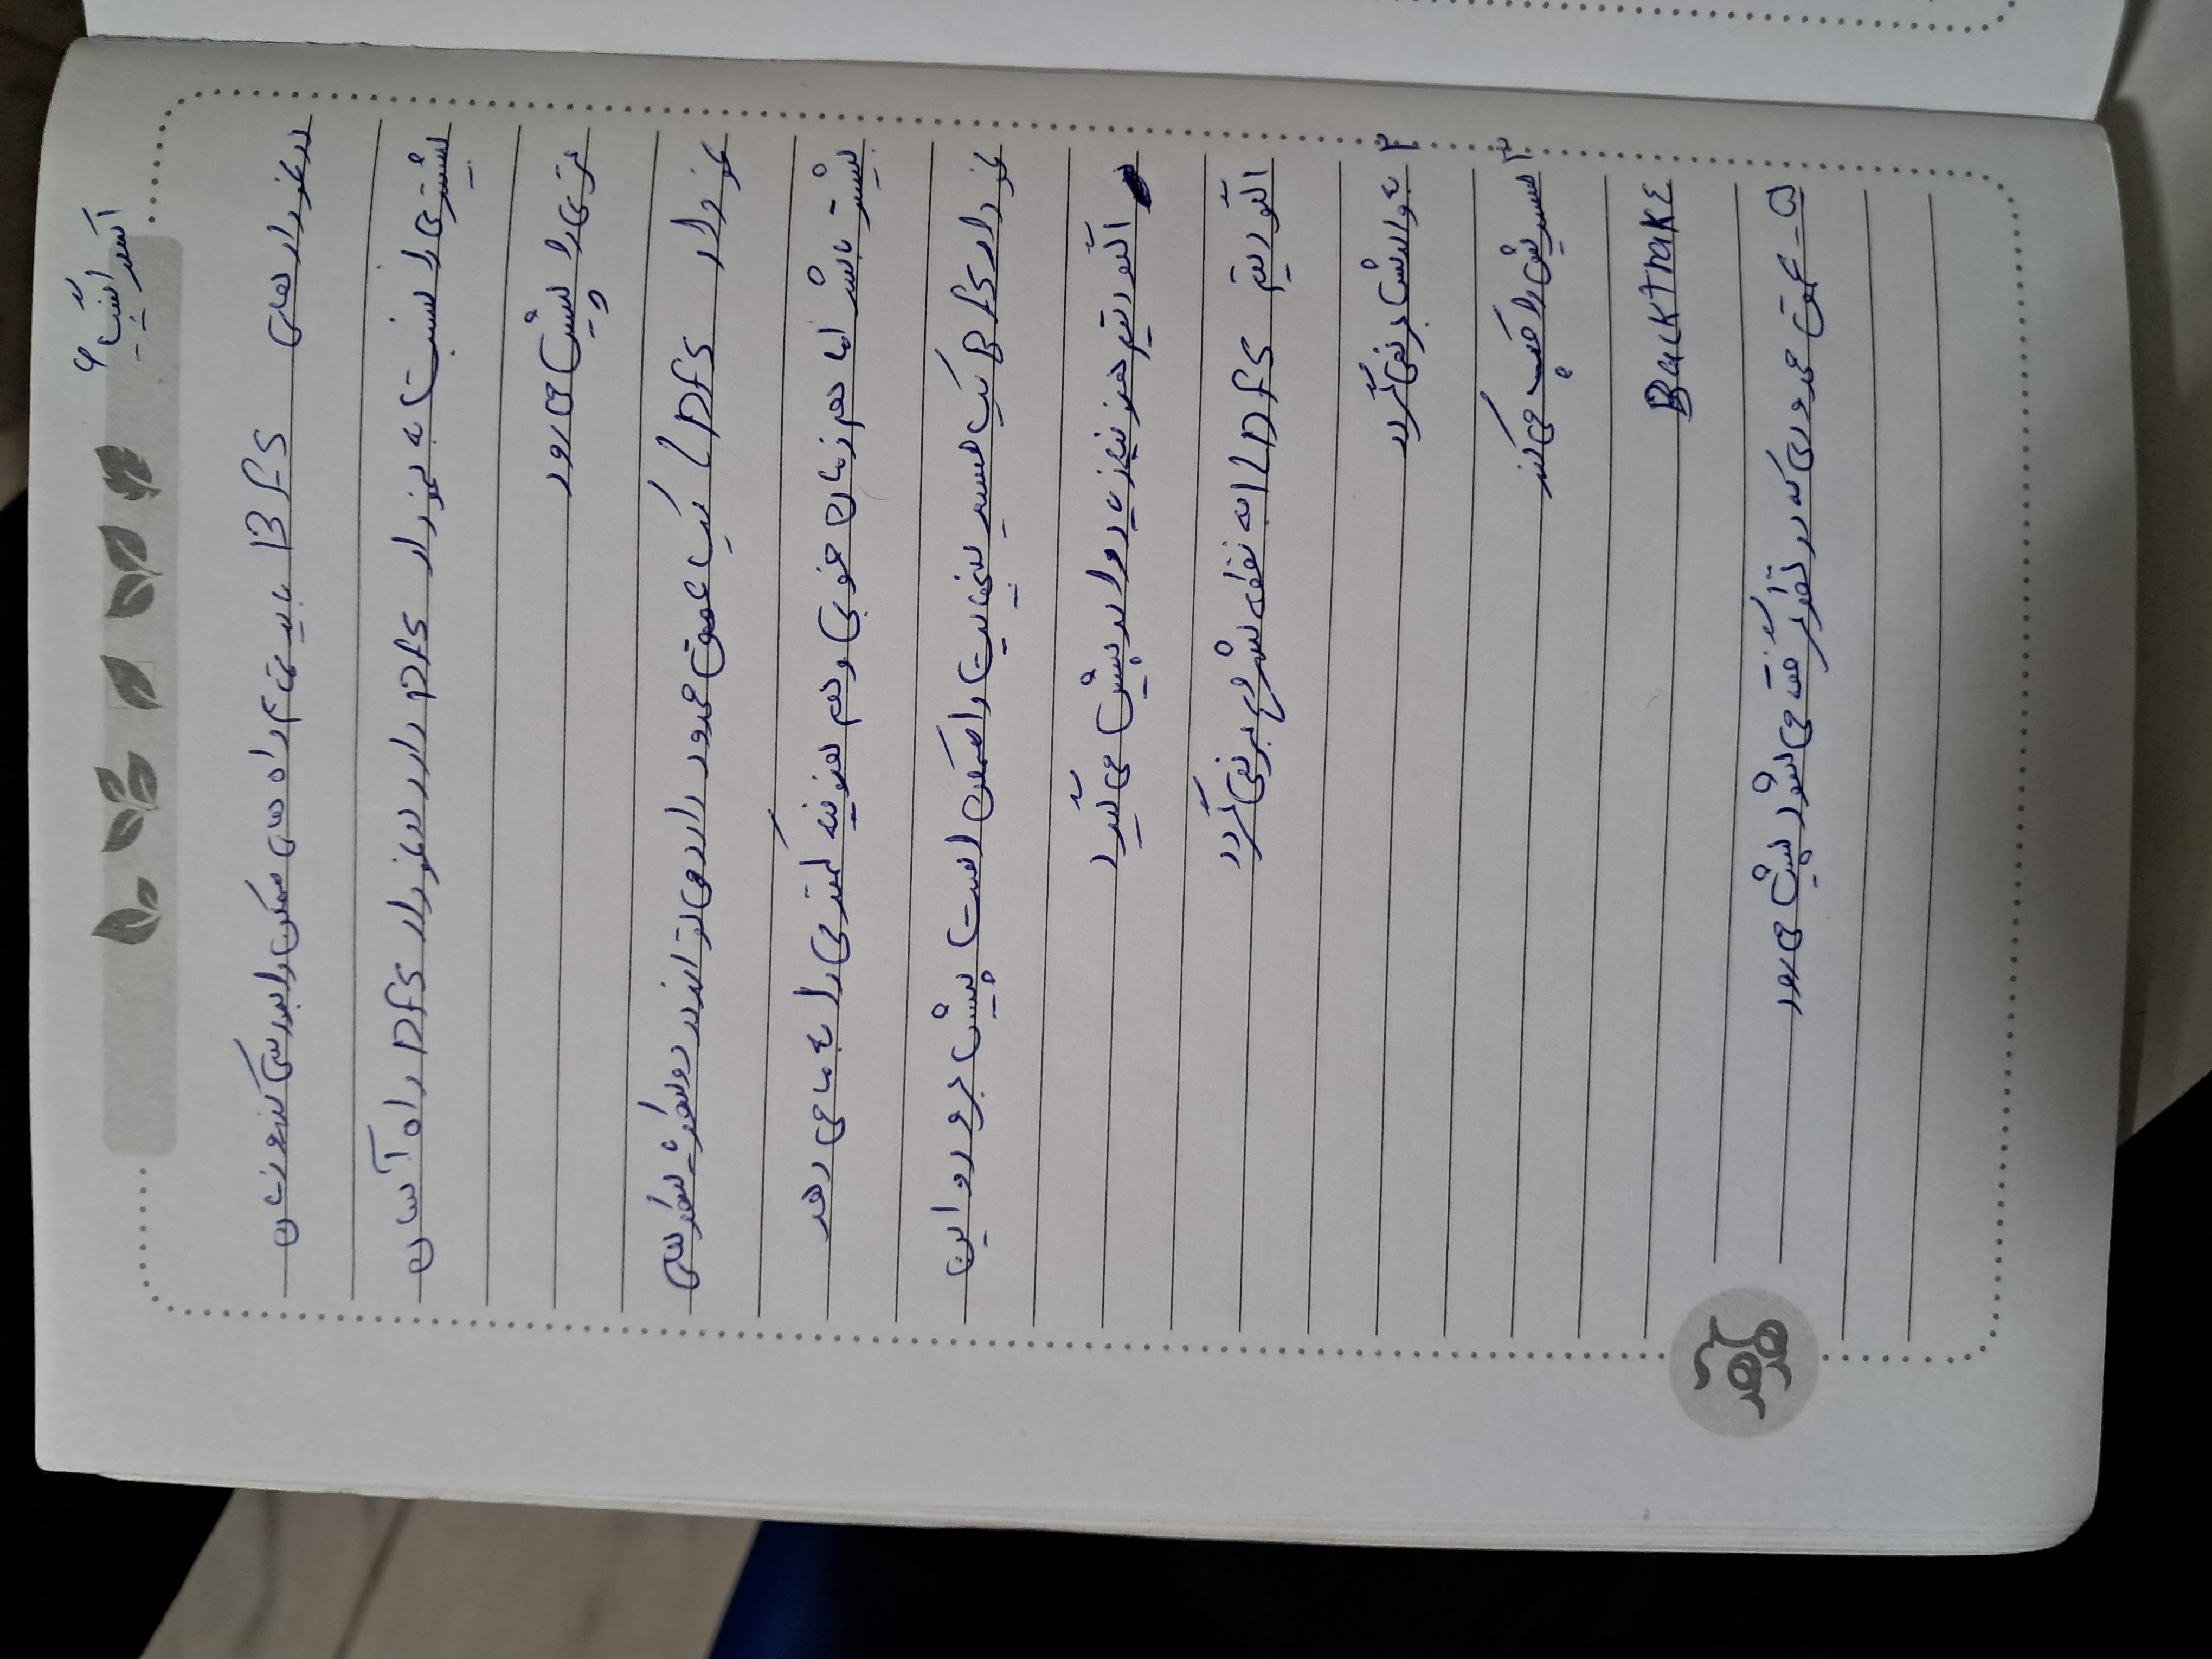 در نمودار های BFS باید تمام راه های ممکن را بررسی کند و زمان
بیشتری را نسبت به نمودار DFS دارد در نمودار DFS راه آسان
تری را پیش می رود
نمودار LDFS یک عمق محدود دارد می تواند در دو
بیشتر باشد اما هم زمان خوبی و هم هزینه کمتری را به ما می دهد
نمودار DFS یک مسیر بینهایت را ممکن است پیش برود و این
الگوریتم هزینه زیاد را در پیش می گیرد
الگوریتم LDFS به نقطه شروع برنمی گردد
۲ به والدش برنمی گردد
۳ مسیرش را چپ می کند
Backtrake
۵- عمق محدودی که در نظر گرفته می شود پیش می رود
هدهد